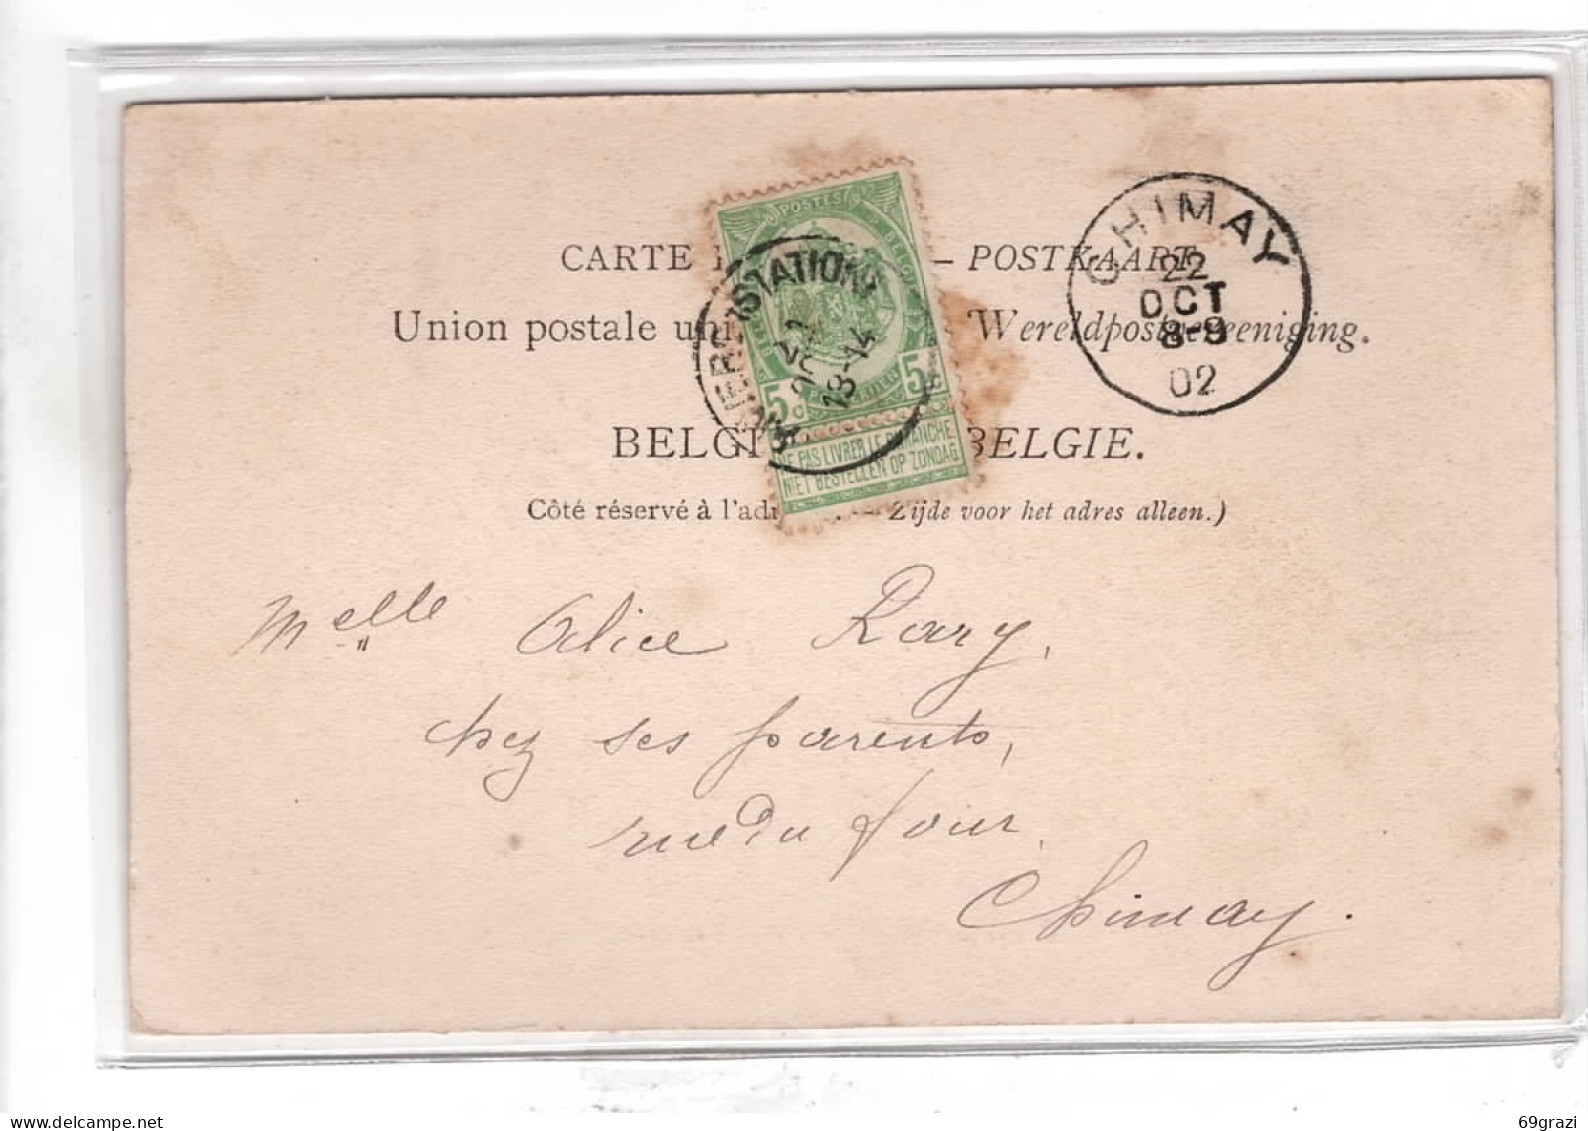 POSTES
BELGIQUE
CARTE — POSTKAART
Union postale Wereldpostvereeniging.
BELGIE.
Côté réservé à Zijde voor het adres alleen.)
5c 5c
NE PAS LIVRER LE DIMANCHE
NIET BESTELLEN OP ZONDAG
(STATION)
21
13-14
CHIMAY
22
OCT
8-9
02
Melle Alice Rary,
chez ses parents,
rue du four
Chimay.
delcampe.net
69grazi